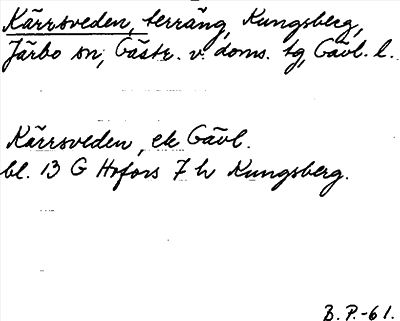 Kärrsveden, terräng, Kungsberg,
Järbo sn, Gästr. v. doms. tg, Gävl. l.
Kärrsveden, ek Gävl.
bl. 13 G Hofors 7 h Kungsberg.
B. P.-61.